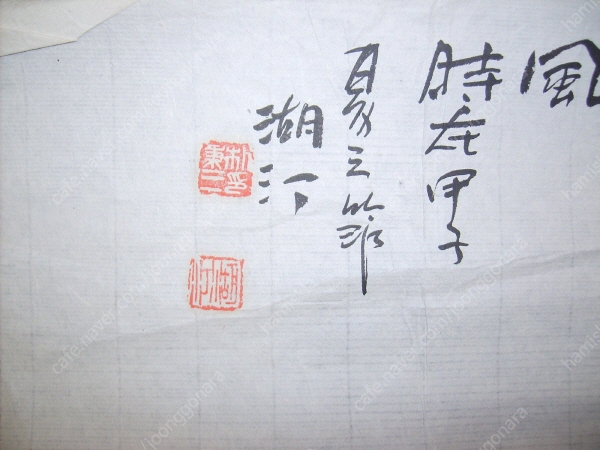 風
時在甲子
夏之節
湖汀
cafe.naver
/joonggonara